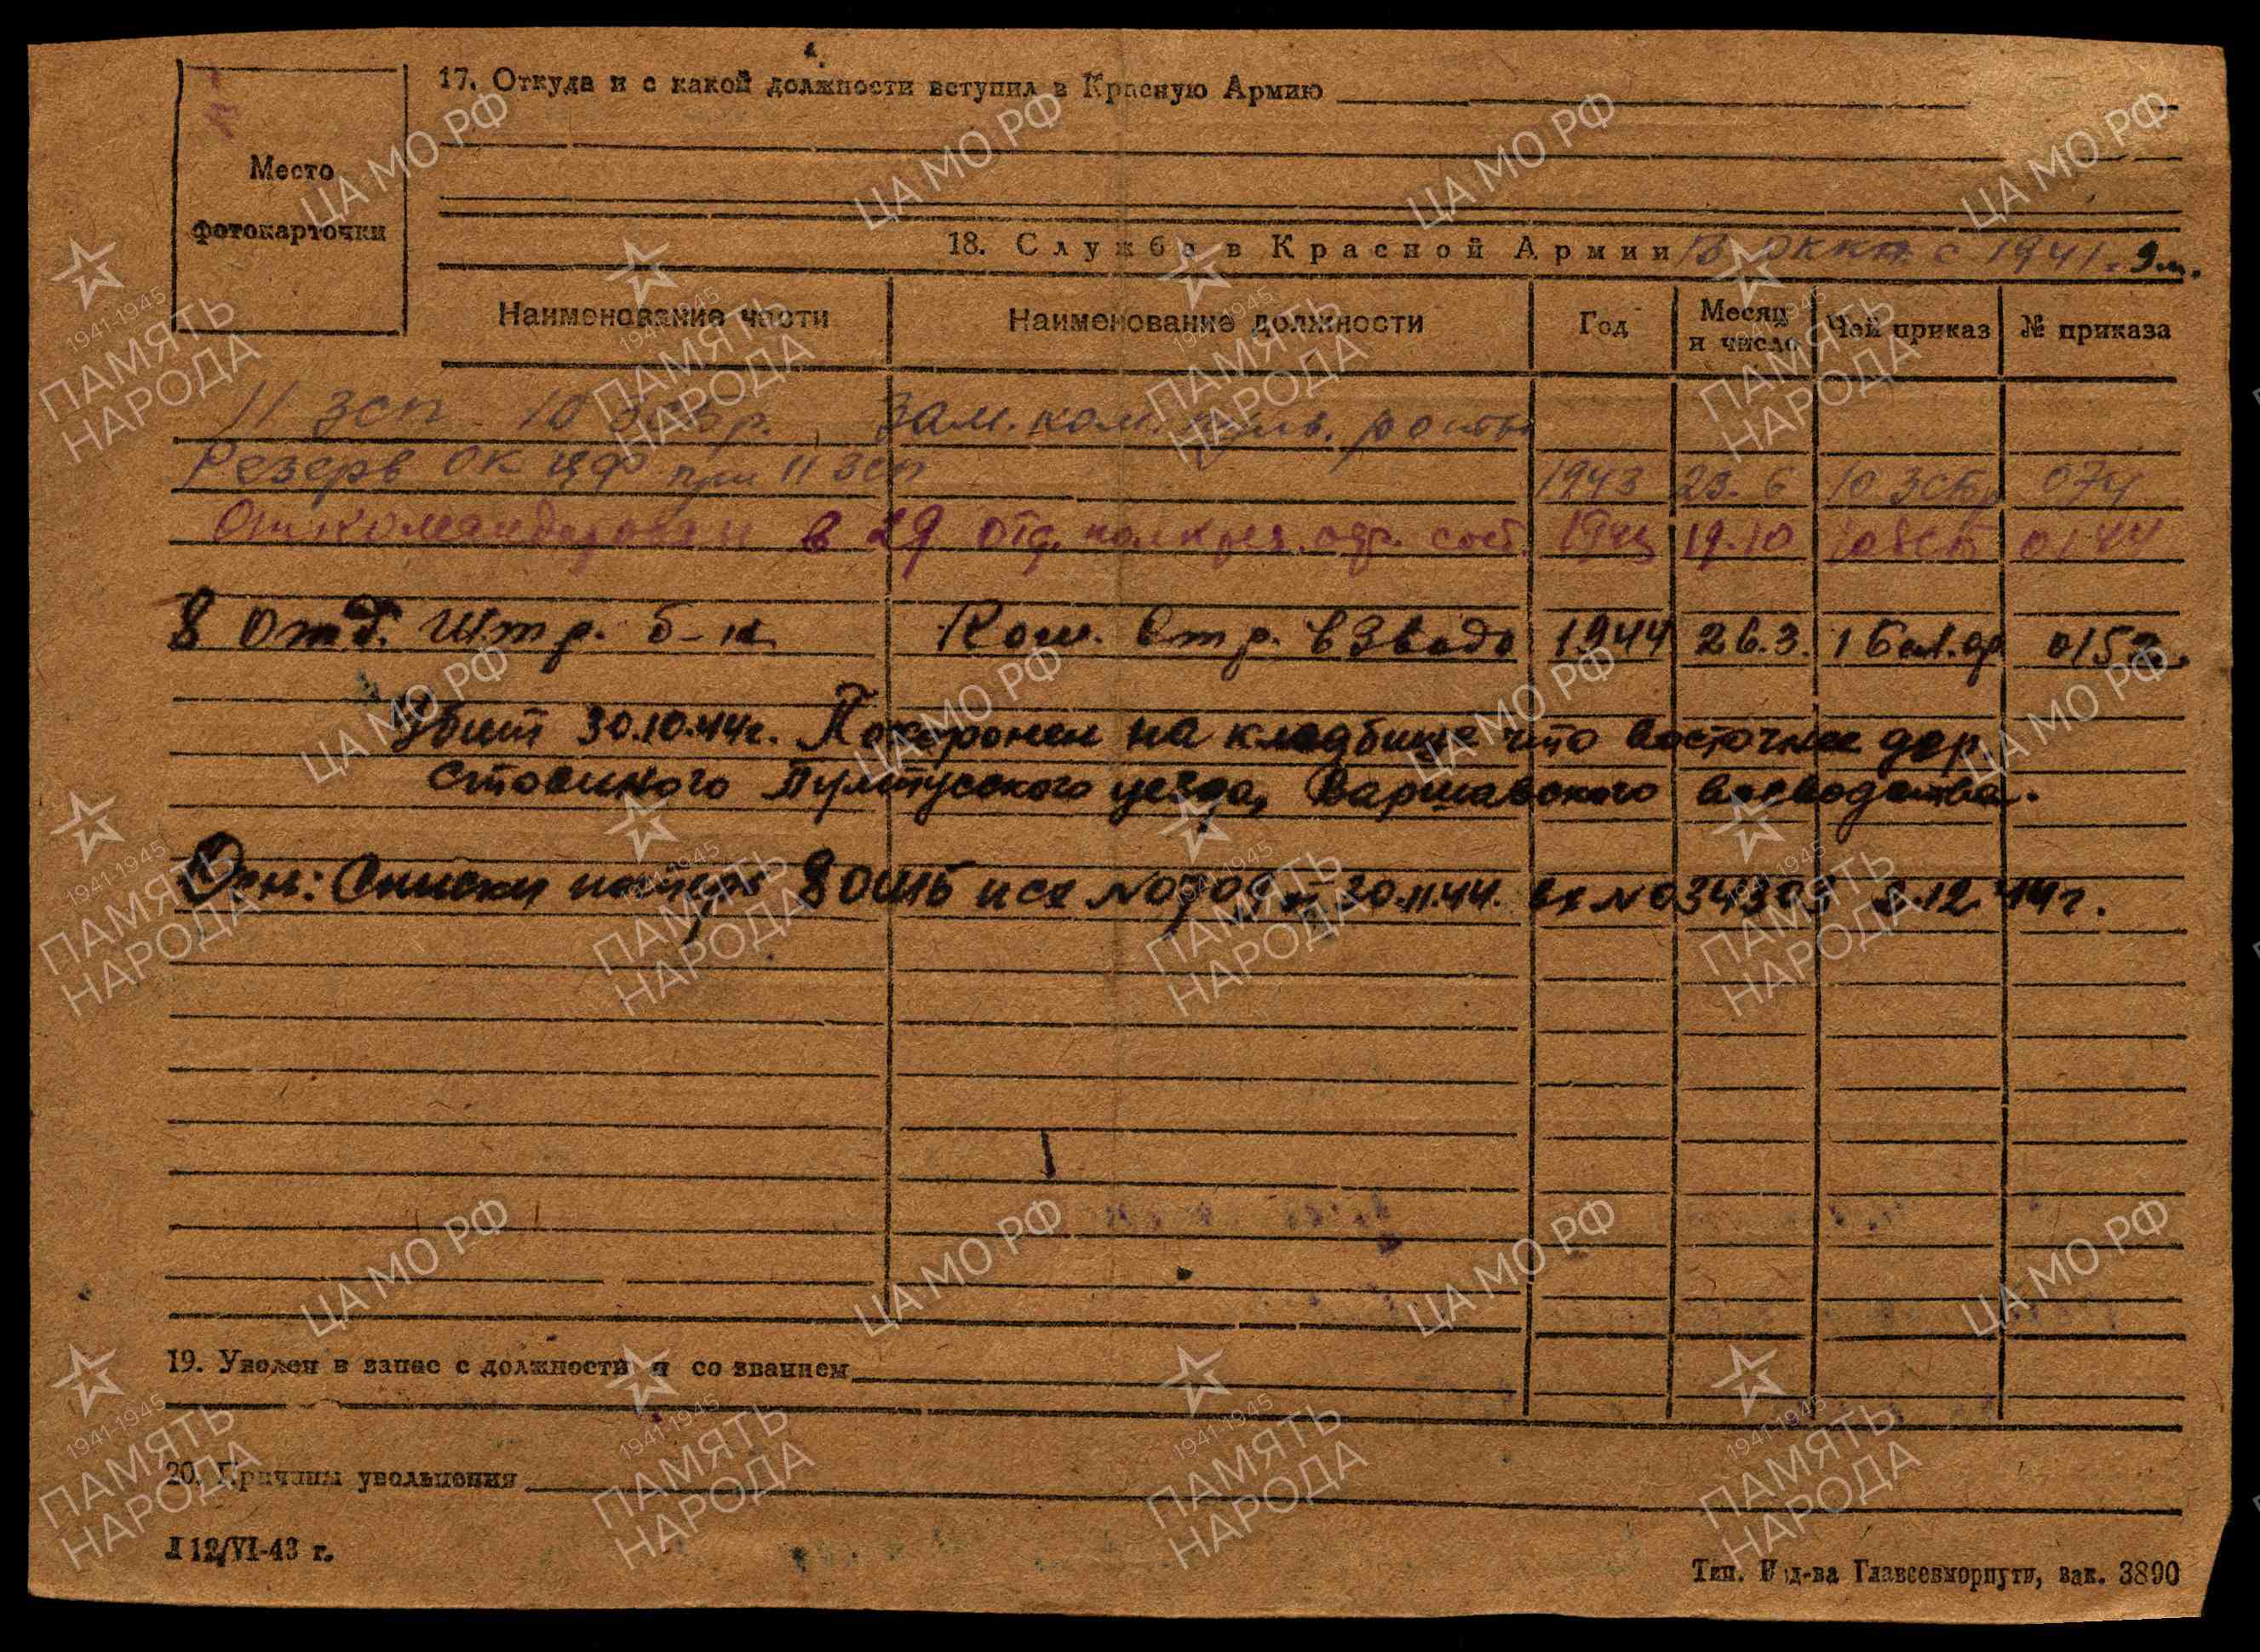 17. Откуда и с какой должности вступил в Красную Армию
Место
фотокарточки
18. Служба в Красной Армии В с 1941.
Наименование части Наименование должности Год Месяц и число Чей приказ № приказа
11 зсп 10 зсбр. Зам. ком. пульв. роты
Резерв ОК ЦФ при 11 зсп 1943 23.6 10 зсбр 074
Откомандирован в 29 отд. полк рез. оф. сост. 1943 19.10 0144
8 отд. штр. б-н Ком. стр. взвода 1944 26.3. 1 Бел. фр
Убит 30.10.44г. Похоронен на кладбище что восточнее дер.
Пултусского уезда, Варшавского воеводства.
Осн: Списки потерь 8 ОШБ исх №0709 от 30.11.44. вх №034303 2.12.44г.
19. Уволен в запас с должности и со званием
20. Причины увольнения
Л 12/VI-43 г.
Тип. Изд-ва Главсевморпути, зак. 3890
ЦА МО РФ
1941-1945
ПАМЯТЬ
НАРОДА